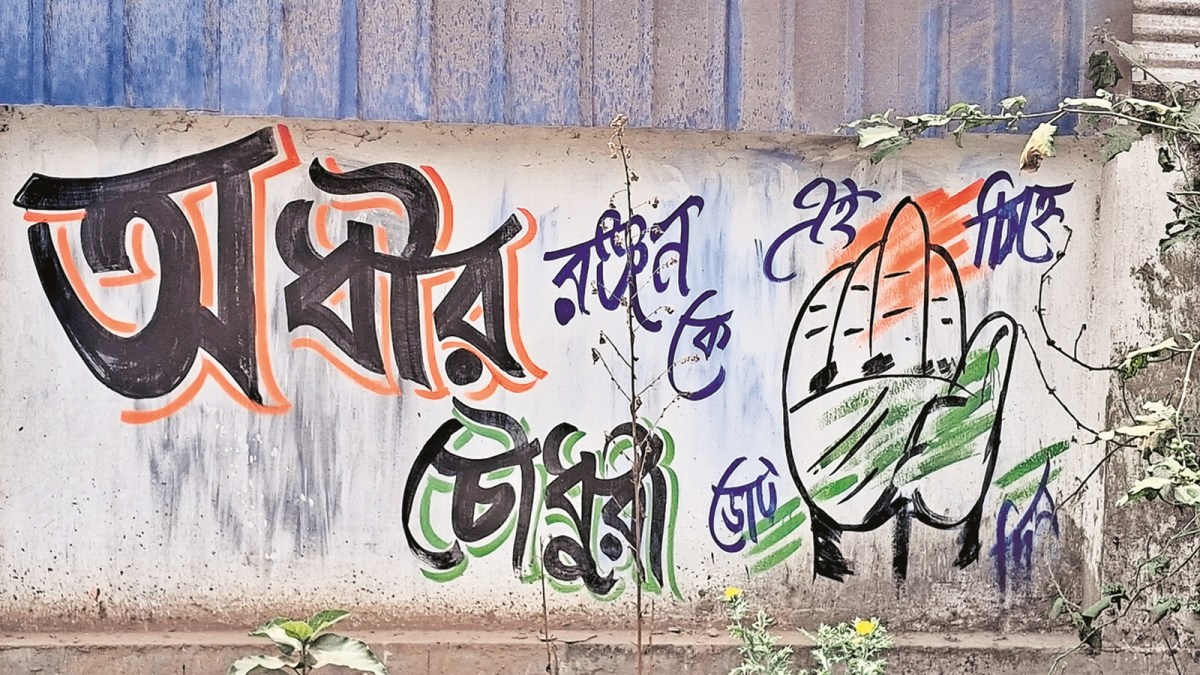 অধীর রঞ্জন কে
চৌধুরী
এই চিহ্নে
ভোট দিন